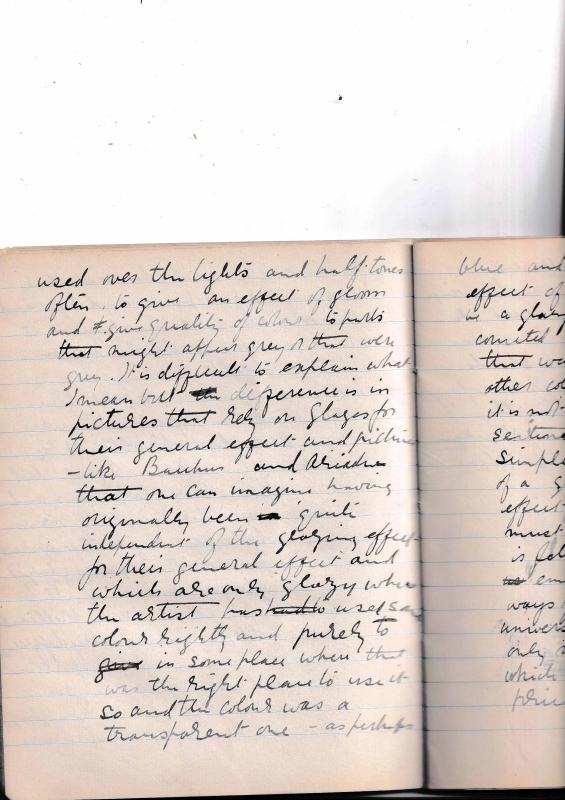 used over the lights and half-tones
often, to give an effect of gloom
and give quality of colour to parts
that might appear grey or that were
grey. It is difficult to explain what
I mean but the difference is in
pictures that rely on glazes for
their general effect and pictures
- like Bacchus and Ariadne
that one can imagine having
originally been quite
independent of the glazing effect
for their general effect and
which are only glazy where
the artist has had to use
colour rightly and purely to
give in some place where that
was the right place to use it
so and the colour was a
transparent one - as perhaps
blue and
effect of
as a
that
other
it is not
simple
of a
effect
must
is
ways
univers
only
which